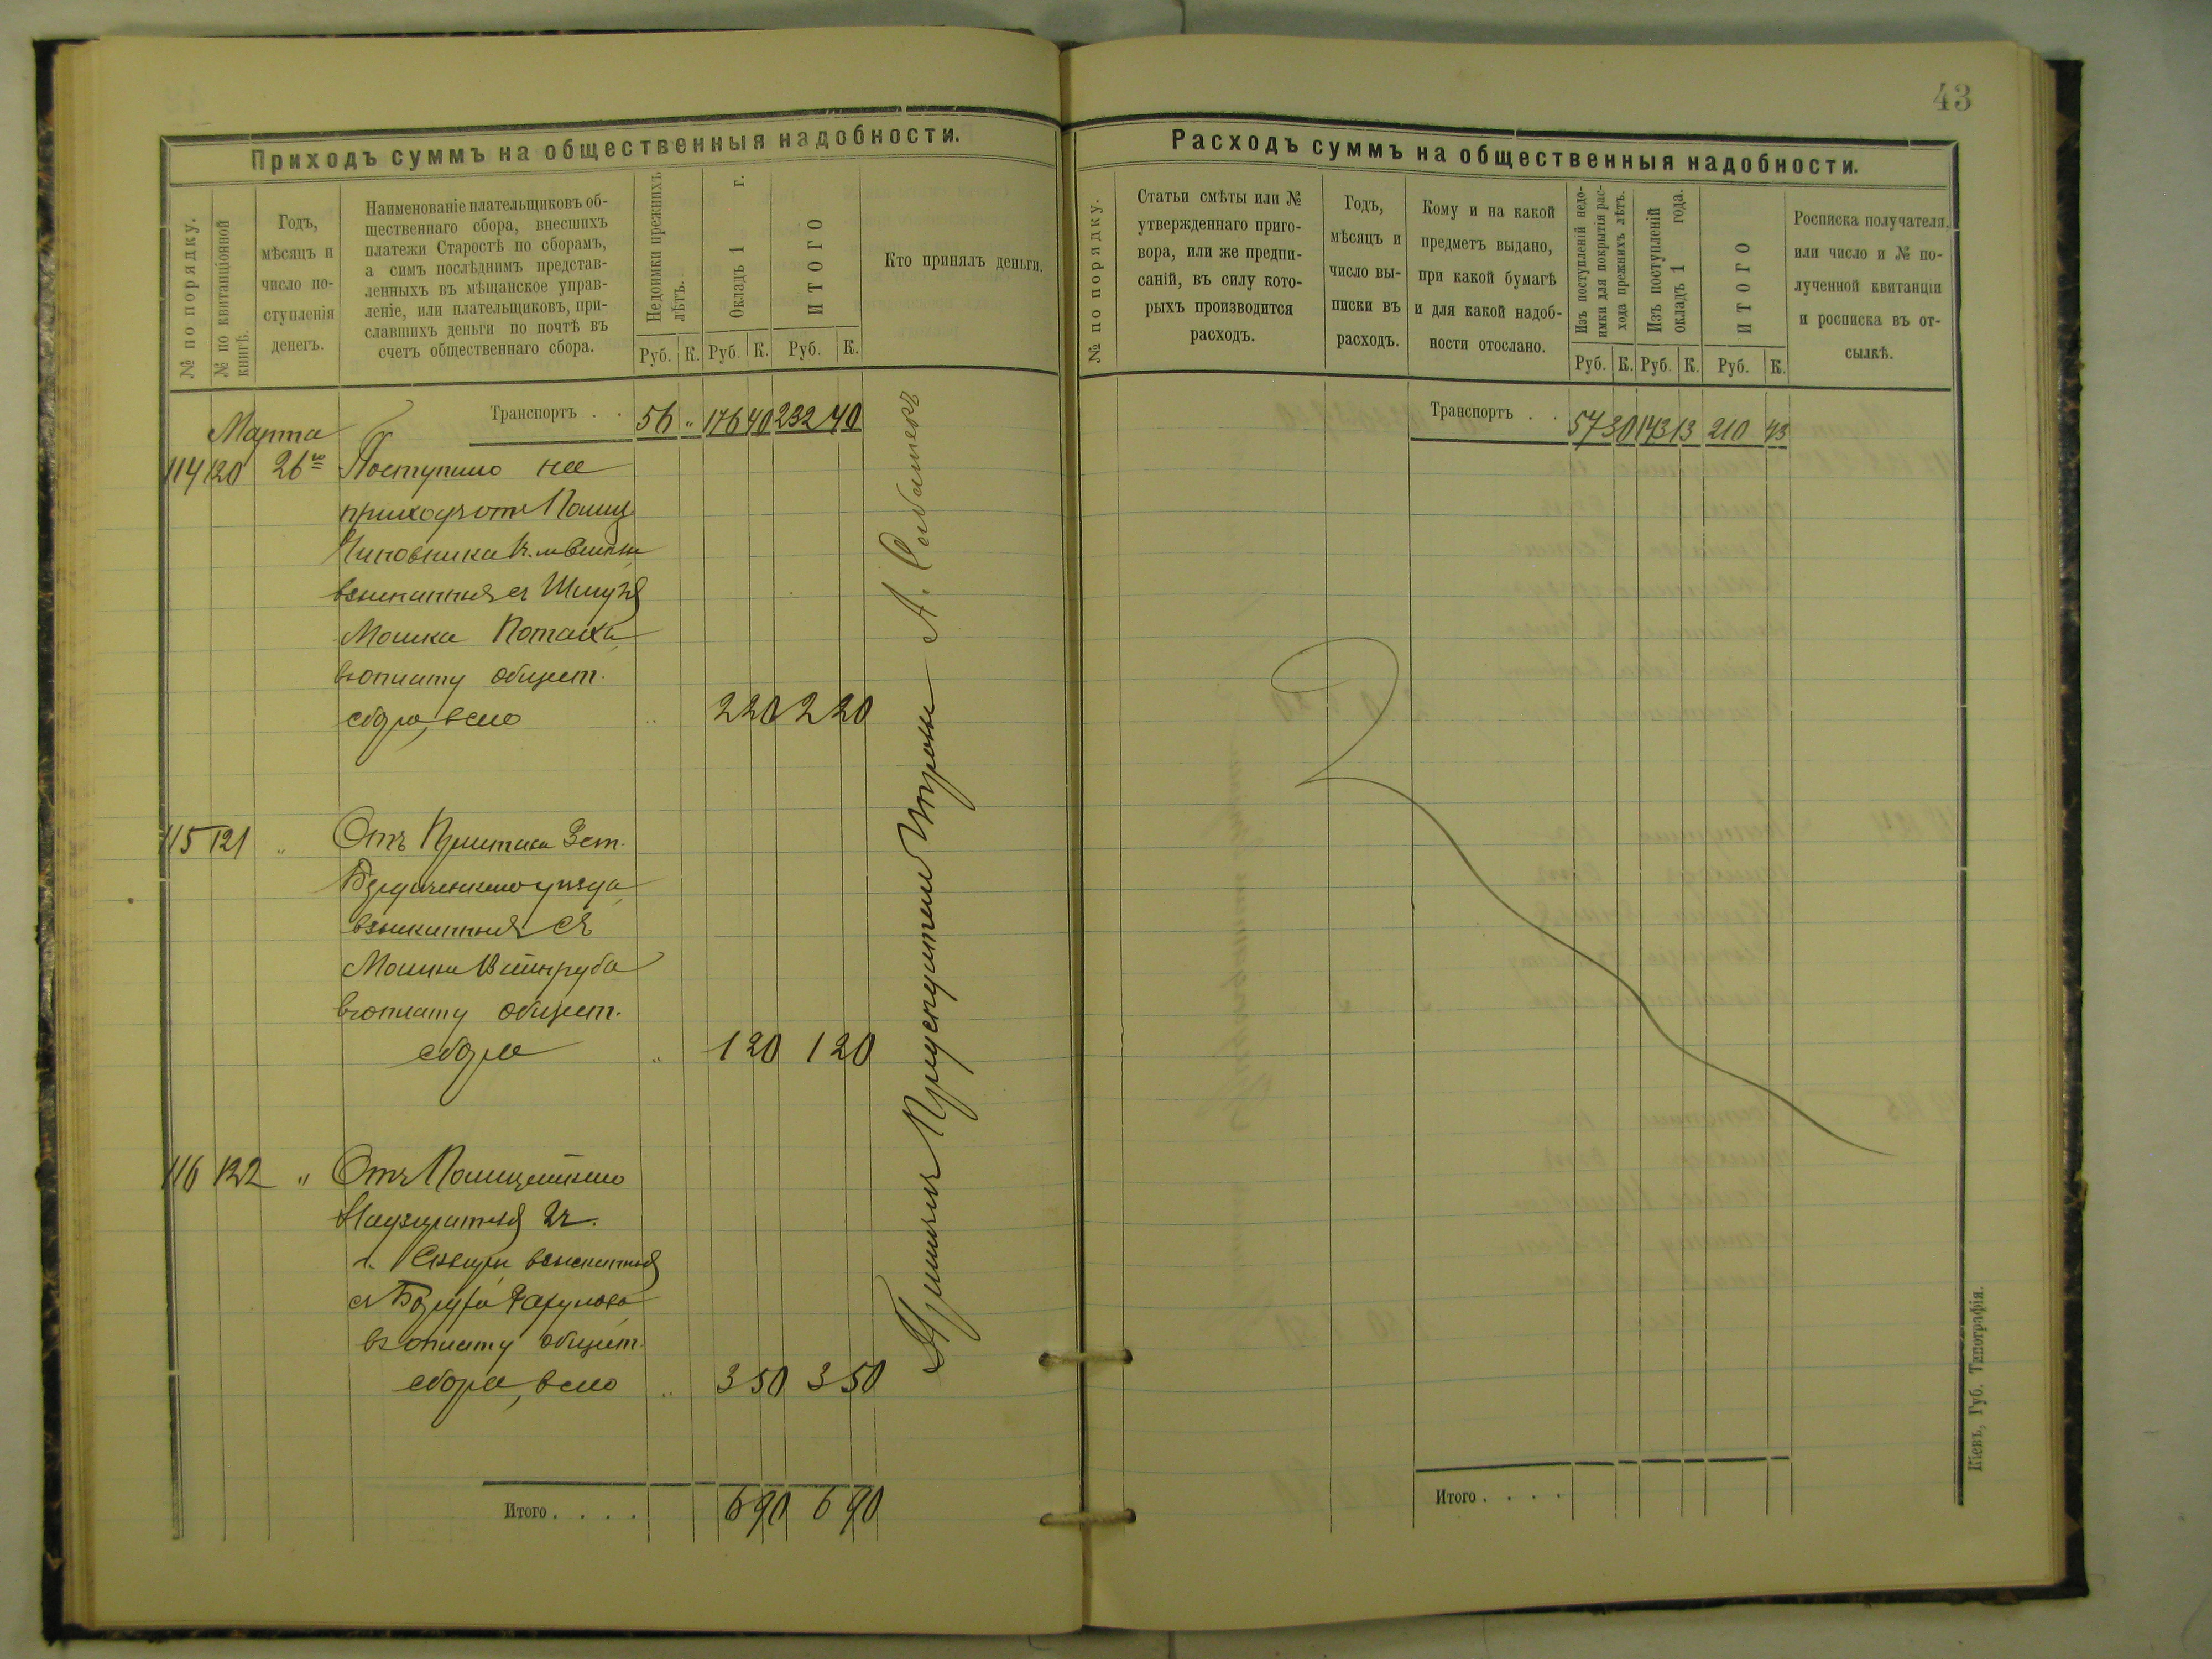 43
Приходъ суммъ на общественныя надобности.
№ по порядку.
№ по квитанціонной
книгѣ.
Годъ,
мѣсяцъ и
число по-
ступленія
денегъ.
Наименованіе плательщиковъ об-
щественнаго сбора, внесшихъ
платежи Старостѣ по сборамъ,
а симъ послѣднимъ представ-
ленныхъ въ мѣщанское управ-
леніе, или плательщиковъ, при-
славшихъ деньги по почтѣ въ
счетъ общественнаго сбора.
Недоимки прежнихъ
лѣтъ.
Окладъ 1 г.
ИТОГО
Кто принялъ деньги.
Руб. К. Руб. К. Руб. К.
Транспортъ . . 56 " 176 40 232 40
Марта
114 120 26го Поступило на
приходъ отъ Полиц.
Чиновника
взысканныя съ Шмуля
Мошка Потаха
въ оплату общест.
сбора, всего " 2 20 2 20
115 121 " Отъ Пристава 3 ст.
Бердичевскаго уѣзда
взысканныя съ
Мошки Вайнруба
въ оплату общест.
сбора " 1 20 1 20
116 122 " Отъ Полицейскаго
Надзирателя 2 ч.
г. Сквиры взысканныя
съ
въ оплату общест.
сбора, всего " 3 50 3 50
Итого . . . . 6 90 6 90
Принялъ Предсѣдатель Управы А.
Расходъ суммъ на общественныя надобности.
№ по порядку.
Статьи смѣты или №
утвержденнаго приго-
вора, или же предпи-
саній, въ силу кото-
рыхъ производится
расходъ.
Годъ,
мѣсяцъ и
число вы-
писки въ
расходъ.
Кому и на какой
предметъ выдано,
при какой бумагѣ
и для какой надоб-
ности отослано.
Изъ поступленій недо-
имки для покрытія рас-
хода прежнихъ лѣтъ.
Изъ поступленій
окладъ 1 года.
ИТОГО
Росписка получателя,
или число и № по-
лученной квитанціи
и росписка въ от-
сылкѣ.
Руб. К. Руб. К. Руб. К.
Транспортъ . . 57 30 143 13 210 43
Итого . . . .
Кіевъ, Губ. Типографія.